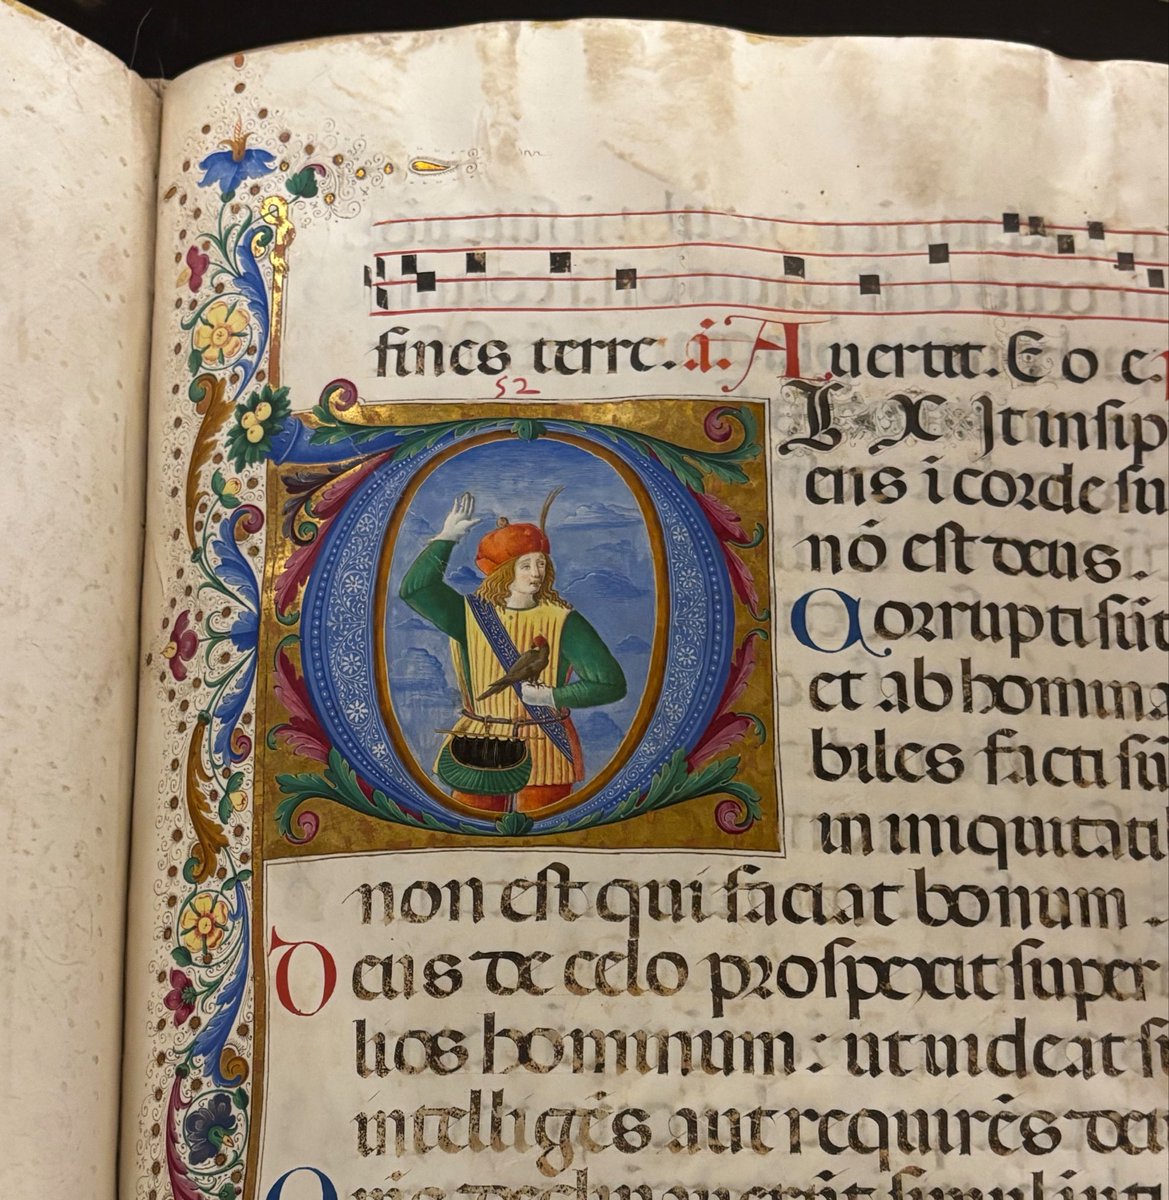 fines terre. a. Auertat. E o e.
52
DIX It insip
ens i corde su
nō est deus.
Corrupti sūt
et ab homina
biles facti sū
in iniquitati
non est qui faciat bonum.
Deus de celo prospexit super
lios hominum : ut uideat si
intelligēs aut requirēs deu
declinauerūt simul inuti